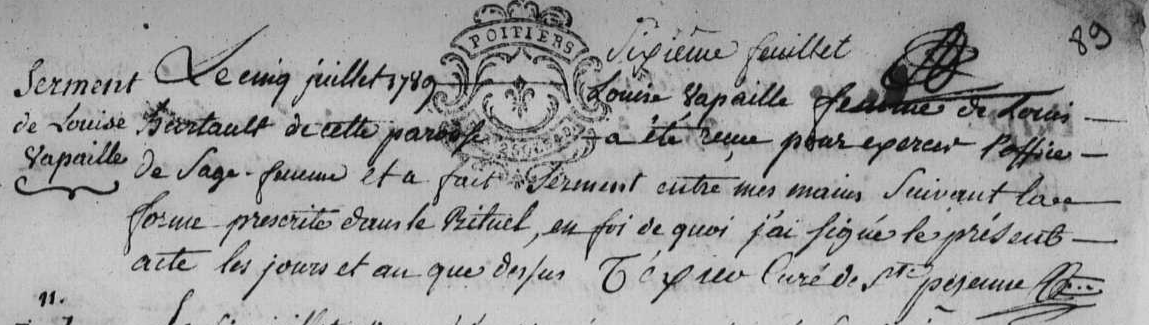 89
Sixième feuillet
POITIERS
Serment
de Louise
Vapaille
Le cinq juillet 1789 Louise Vapaille femme de Louis
Bertault de cette paroisse a été reçue pour exercer l'office
de Sage-femme et a fait Serment entre mes mains Suivant la
forme prescrite dans le Rituel, en foi de quoi j'ai signé le présent
acte les jours et an que dessus Téxier Curé de Ste pezenne
11.